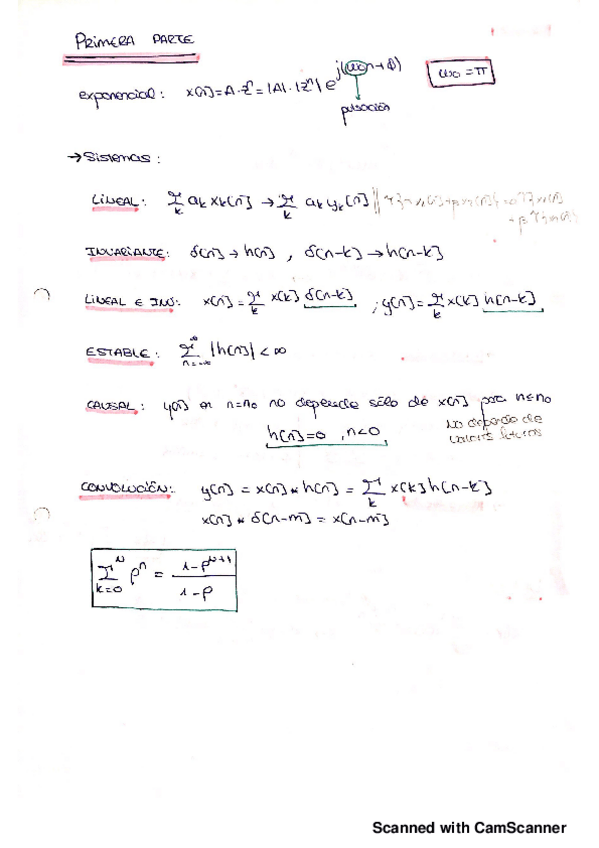 PRIMERA PARTE
exponencial: x[n]=A·zⁿ=|A|·|zⁿ| e^j(ω₀n+φ) ω₀=π
pulsación
→ Sistemas:
LINEAL: Σ_k a_k x_k[n] → Σ_k a_k y_k[n] ||
INVARIANTE: δ[n] → h[n], δ[n-k] → h[n-k]
LINEAL E INV: x[n]=Σ_k x[k] δ[n-k] ; y[n]=Σ_k x[k] h[n-k]
ESTABLE: Σ_{n=-∞}^{∞} |h[n]| < ∞
CAUSAL: y[n] en n=n₀ no depende sólo de x[n] para n≤n₀
h[n]=0 , n<0 No depende de
valores futuros
CONVOLUCIÓN: y[n] = x[n] * h[n] = Σ_k x[k] h[n-k]
x[n] * δ[n-m] = x[n-m]
Σ_{k=0}^{N} ρⁿ = (1-ρ^{N+1})/(1-ρ)
Scanned with CamScanner